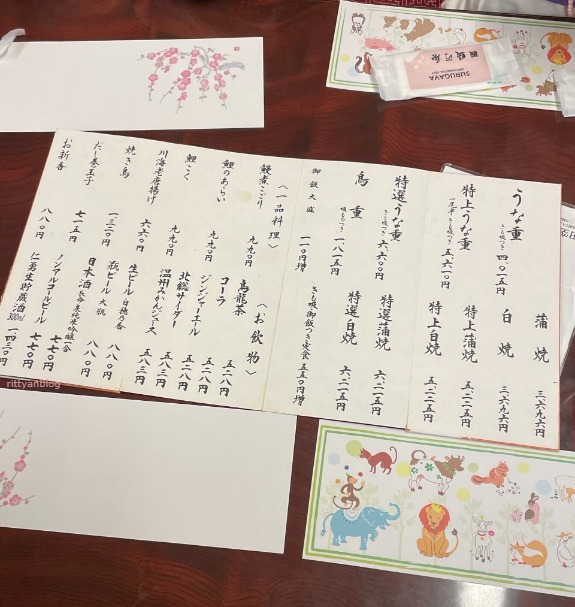 うな重 きも吸つき 四、〇一五円
特上うな重 一尾半 きも吸つき
特選うな重 きも吸つき 六、六〇〇円
鳥重 吸ものつき 一、八一五円
御飯大盛 一一〇円増
蒲焼 三、六九六円
白焼 三、六九六円
特上蒲焼 五、二二五円
特上白焼 五、二二五円
特選蒲焼 六、二一五円
特選白焼 六、二一五円
きも吸・御飯つき定食 五五〇円増
〈一品料理〉
鰻煮こごり 九九〇円
鯉のあらい 九九〇円
鯉こく 九九〇円
川海老唐揚げ 六六〇円
焼き鳥 一、三二〇円
だし巻玉子 七一五円
お新香 八八〇円
〈お飲物〉
烏龍茶 五二八円
コーラ 五二八円
ジンジャーエール 五二八円
北総サイダー 五八三円
温州みかんジュース 五八三円
生ビール 白穂乃香 八八〇円
瓶ビール 大瓶 八八〇円
日本酒 長命泉純米吟醸一合 八八〇円
ノンアルコールビール 七七〇円
仁勇生貯蔵酒 300ml 一四三〇円
SURUGAYA
rittyanblog